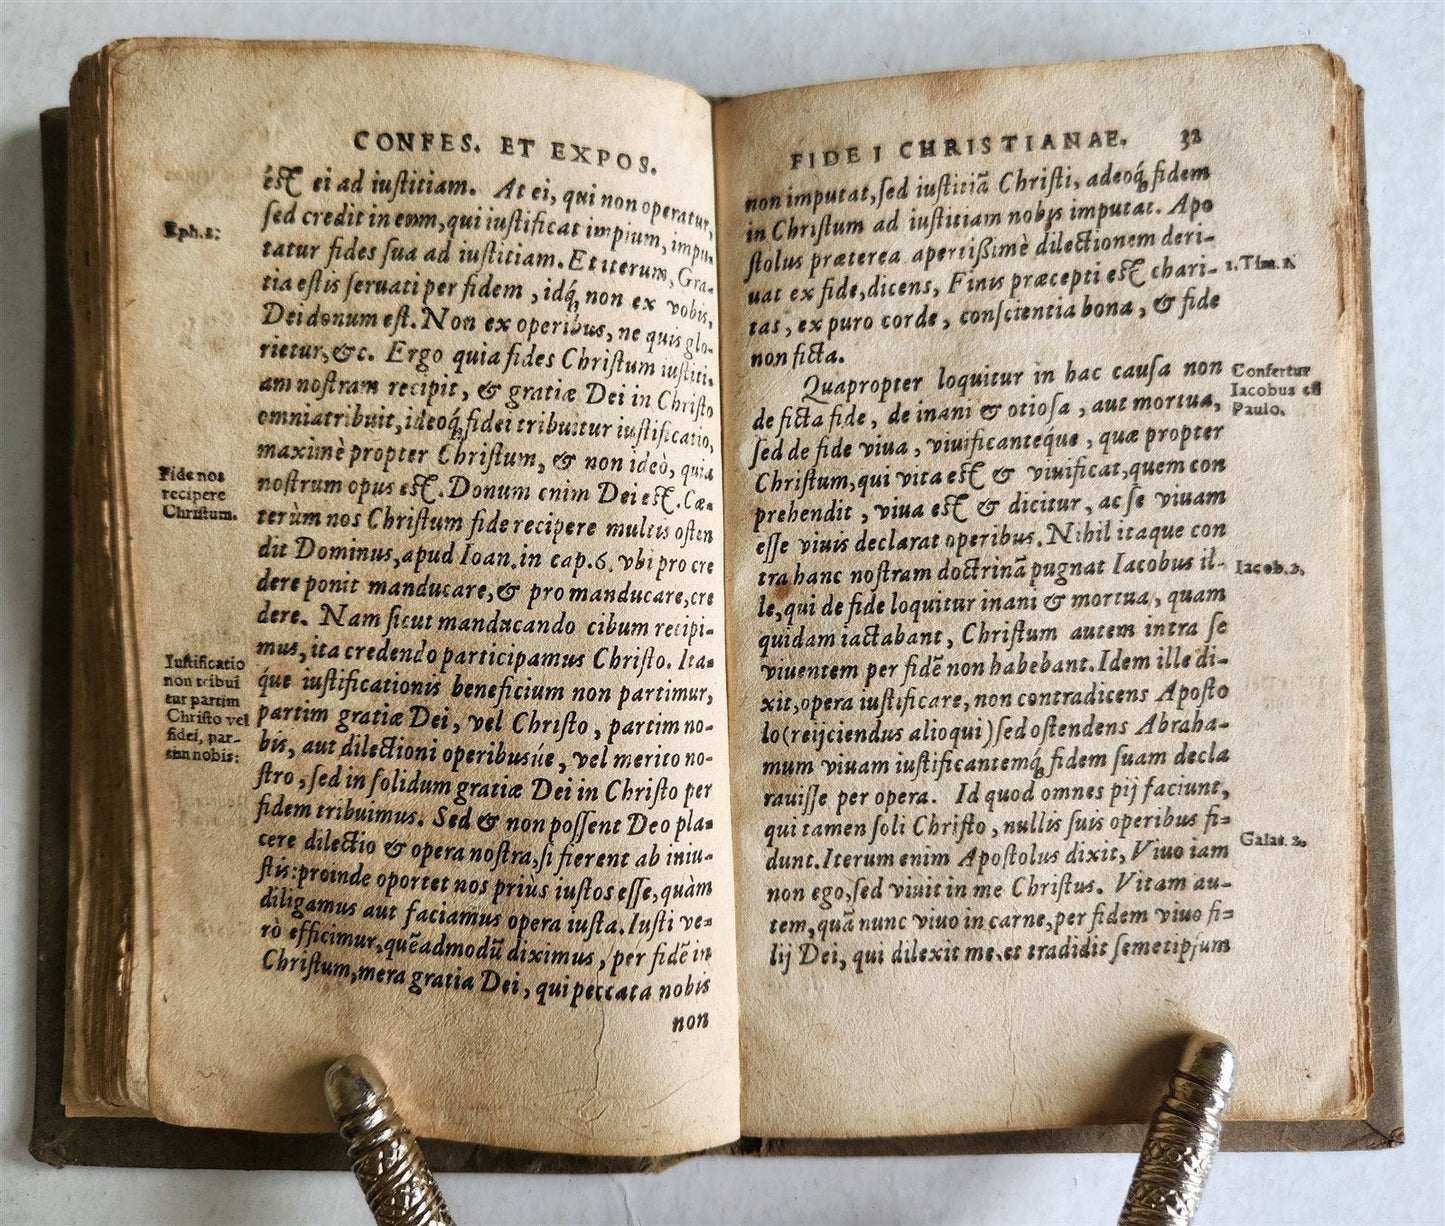 CONFES. ET EXPOS.
est ei ad iustitiam. At ei, qui non operatur,
sed credit in eum, qui iustificat impium, impu-
tatur fides sua ad iustitiam. Et iterum, Gra-
tia estis seruati per fidem, idq́; non ex vobis,
Dei donum est. Non ex operibus, ne quis glo-
rietur, &c. Ergo quia fides Christum iustiti-
am nostram recipit, & gratiæ Dei in Christo
omnia tribuit, ideoq́; fidei tribuitur iustificatio,
maximè propter Christum, & non ideò, quia
nostrum opus est. Donum enim Dei est. Cæ-
terùm nos Christum fide recipere multis osten
dit Dominus, apud Ioan. in cap. 6. vbi pro cre
dere ponit manducare, & pro manducare, cre
dere. Nam sicut manducando cibum recipi-
mus, ita credendo participamus Christo. Ita-
q́ue iustificationis beneficium non partimur,
partim gratiæ Dei, vel Christo, partim no-
bis, aut dilectioni operibusúe, vel merito no-
stro, sed in solidum gratiæ Dei in Christo per
fidem tribuimus. Sed & non possent Deo pla-
cere dilectio & opera nostra, si fierent ab iniu-
stis: proinde oportet nos priùs iustos esse, quàm
diligamus aut faciamus opera iusta. Iusti ve-
rò efficimur, quẽadmodũ diximus, per fidẽ in
Christum, mera gratia Dei, qui peccata nobis
non
Eph. 2:
Fide nos
recipere
Christum.
Iustificatio
non tribui
tur partim
Christo vel
fidei, par-
tim nobis:
FIDEI CHRISTIANAE. 32
non imputat, sed iustitiã Christi, adeoq́; fidem
in Christum ad iustitiam nobis imputat. Apo
stolus præterea apertissimè dilectionem deri-
uat ex fide, dicens, Finis præcepti est chari-
tas, ex puro corde, conscientia bona, & fide
non ficta.
Quapropter loquitur in hac causa non
de ficta fide, de inani & otiosa, aut mortua,
sed de fide viua, viuificantéque, quæ propter
Christum, qui vita est & viuificat, quem con
prehendit, viua est & dicitur, ac se viuam
esse viuis declarat operibus. Nihil itaque con
tra hanc nostram doctrinã pugnat Iacobus il-
le, qui de fide loquitur inani & mortua, quam
quidam iactabant, Christum autem intra se
viuentem per fidẽ non habebant. Idem ille di-
xit, opera iustificare, non contradicens Aposto
lo (reijciendus alioqui) sed ostendens Abraha-
mum viuam iustificantemq́; fidem suam decla
rauisse per opera. Id quod omnes pij faciunt,
qui tamen soli Christo, nullis suis operibus fi-
dunt. Iterum enim Apostolus dixit, Viuo iam
non ego, sed viuit in me Christus. Vitam au-
tem, quã nunc viuo in carne, per fidem viuo fi-
lij Dei, qui dilexit me, et tradidit semetipsum
1. Tim. 1.
Confertur
Iacobus cũ
Paulo.
Iacob. 2.
Galat. 2.